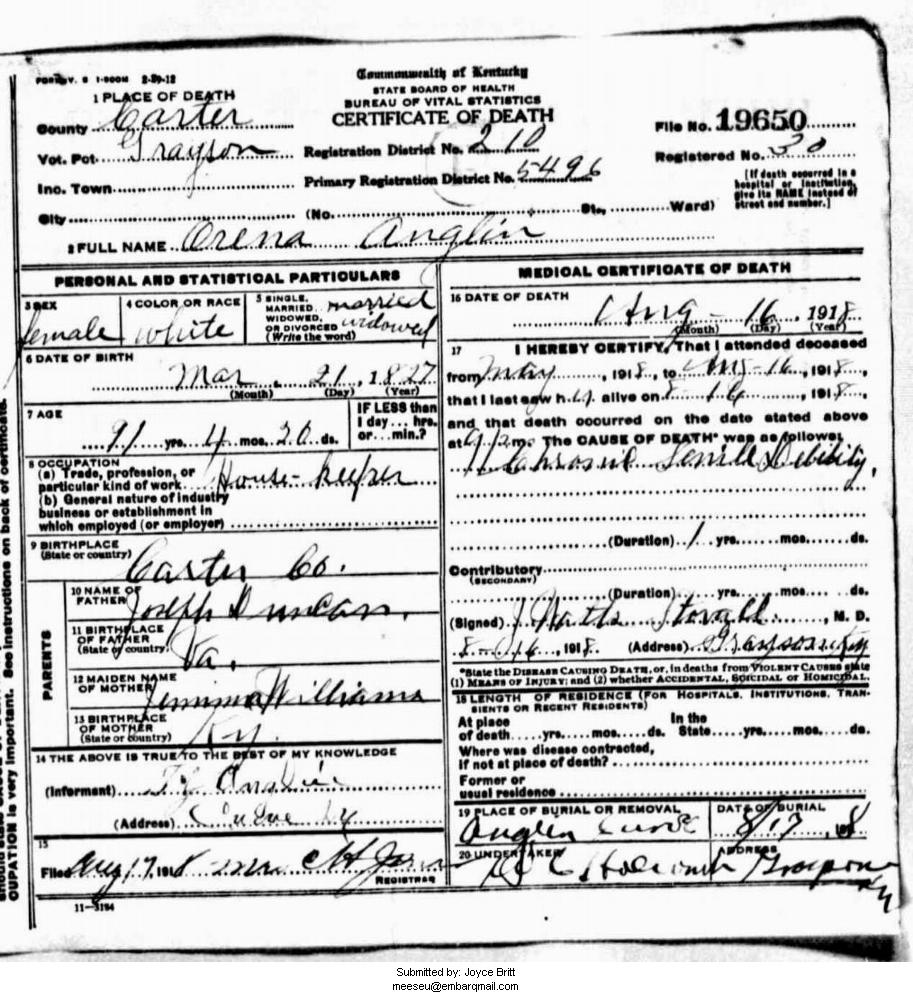 FORM V. S 1-500M 2-29-12
Commonwealth of Kentucky
STATE BOARD OF HEALTH
BUREAU OF VITAL STATISTICS
CERTIFICATE OF DEATH
1 PLACE OF DEATH
County Carter
Vot. Pct. Grayson
Inc. Town
City
Registration District No. 210
Primary Registration District No. 5496
File No. 19650
Registered No. 30
[If death occurred in a
hospital or institution,
give its NAME instead of
street and number.]
(No. St., Ward)
2 FULL NAME Orena Anglin
PERSONAL AND STATISTICAL PARTICULARS
3 SEX
female
4 COLOR OR RACE
white
5 SINGLE,
MARRIED,
WIDOWED,
OR DIVORCED
(Write the word)
married
widowed
6 DATE OF BIRTH
Mar 21, 1827
(Month) (Day) (Year)
7 AGE
91 yrs. 4 mos. 20 ds.
IF LESS than
1 day... hrs.
or... min.?
8 OCCUPATION
(a) Trade, profession, or
particular kind of work House-keeper
(b) General nature of industry
business or establishment in
which employed (or employer)
9 BIRTHPLACE
(State or country)
Carter Co.
PARENTS
10 NAME OF
FATHER Joseph Duncan.
11 BIRTHPLACE
OF FATHER
(State or country)
Va.
12 MAIDEN NAME
OF MOTHER Jemima Williams
13 BIRTHPLACE
OF MOTHER
(State or country) Ky.
14 THE ABOVE IS TRUE TO THE BEST OF MY KNOWLEDGE
(Informant) Anglin
(Address) Ky
15
Filed Aug 17, 1918
REGISTRAR
11-3184
MEDICAL CERTIFICATE OF DEATH
16 DATE OF DEATH
Aug - 16, 1918
(Month) (Day) (Year)
17 I HEREBY CERTIFY, That I attended deceased
from May, 1918, to Aug-16, 1918,
that I last saw h alive on 8 16, 1918,
and that death occurred on the date stated above
at m. The CAUSE OF DEATH* was as follows
Senile Debility,
(Duration) 1 yrs. mos. ds.
Contributory
(SECONDARY)
(Duration) yrs. mos. ds.
(Signed) J Watts Stovall, M. D.
8-16, 1918. (Address) Grayson Ky
*State the DISEASE CAUSING DEATH, or, in deaths from VIOLENT CAUSES state
(1) MEANS OF INJURY; and (2) whether ACCIDENTAL, SUICIDAL or HOMICIDAL.
18 LENGTH OF RESIDENCE (FOR HOSPITALS, INSTITUTIONS, TRAN-
SIENTS OR RECENT RESIDENTS)
At place
of death yrs. mos. ds.
In the
State yrs. mos. ds.
Where was disease contracted,
if not at place of death?
Former or
usual residence
19 PLACE OF BURIAL OR REMOVAL
Anglin
DATE OF BURIAL
8/17, 1918
20 UNDERTAKER
Holcomb
ADDRESS
Grayson
Ky
OCCUPATION is very important. See instructions on back of certificate.
Submitted by: Joyce Britt
meeseu@embarqmail.com